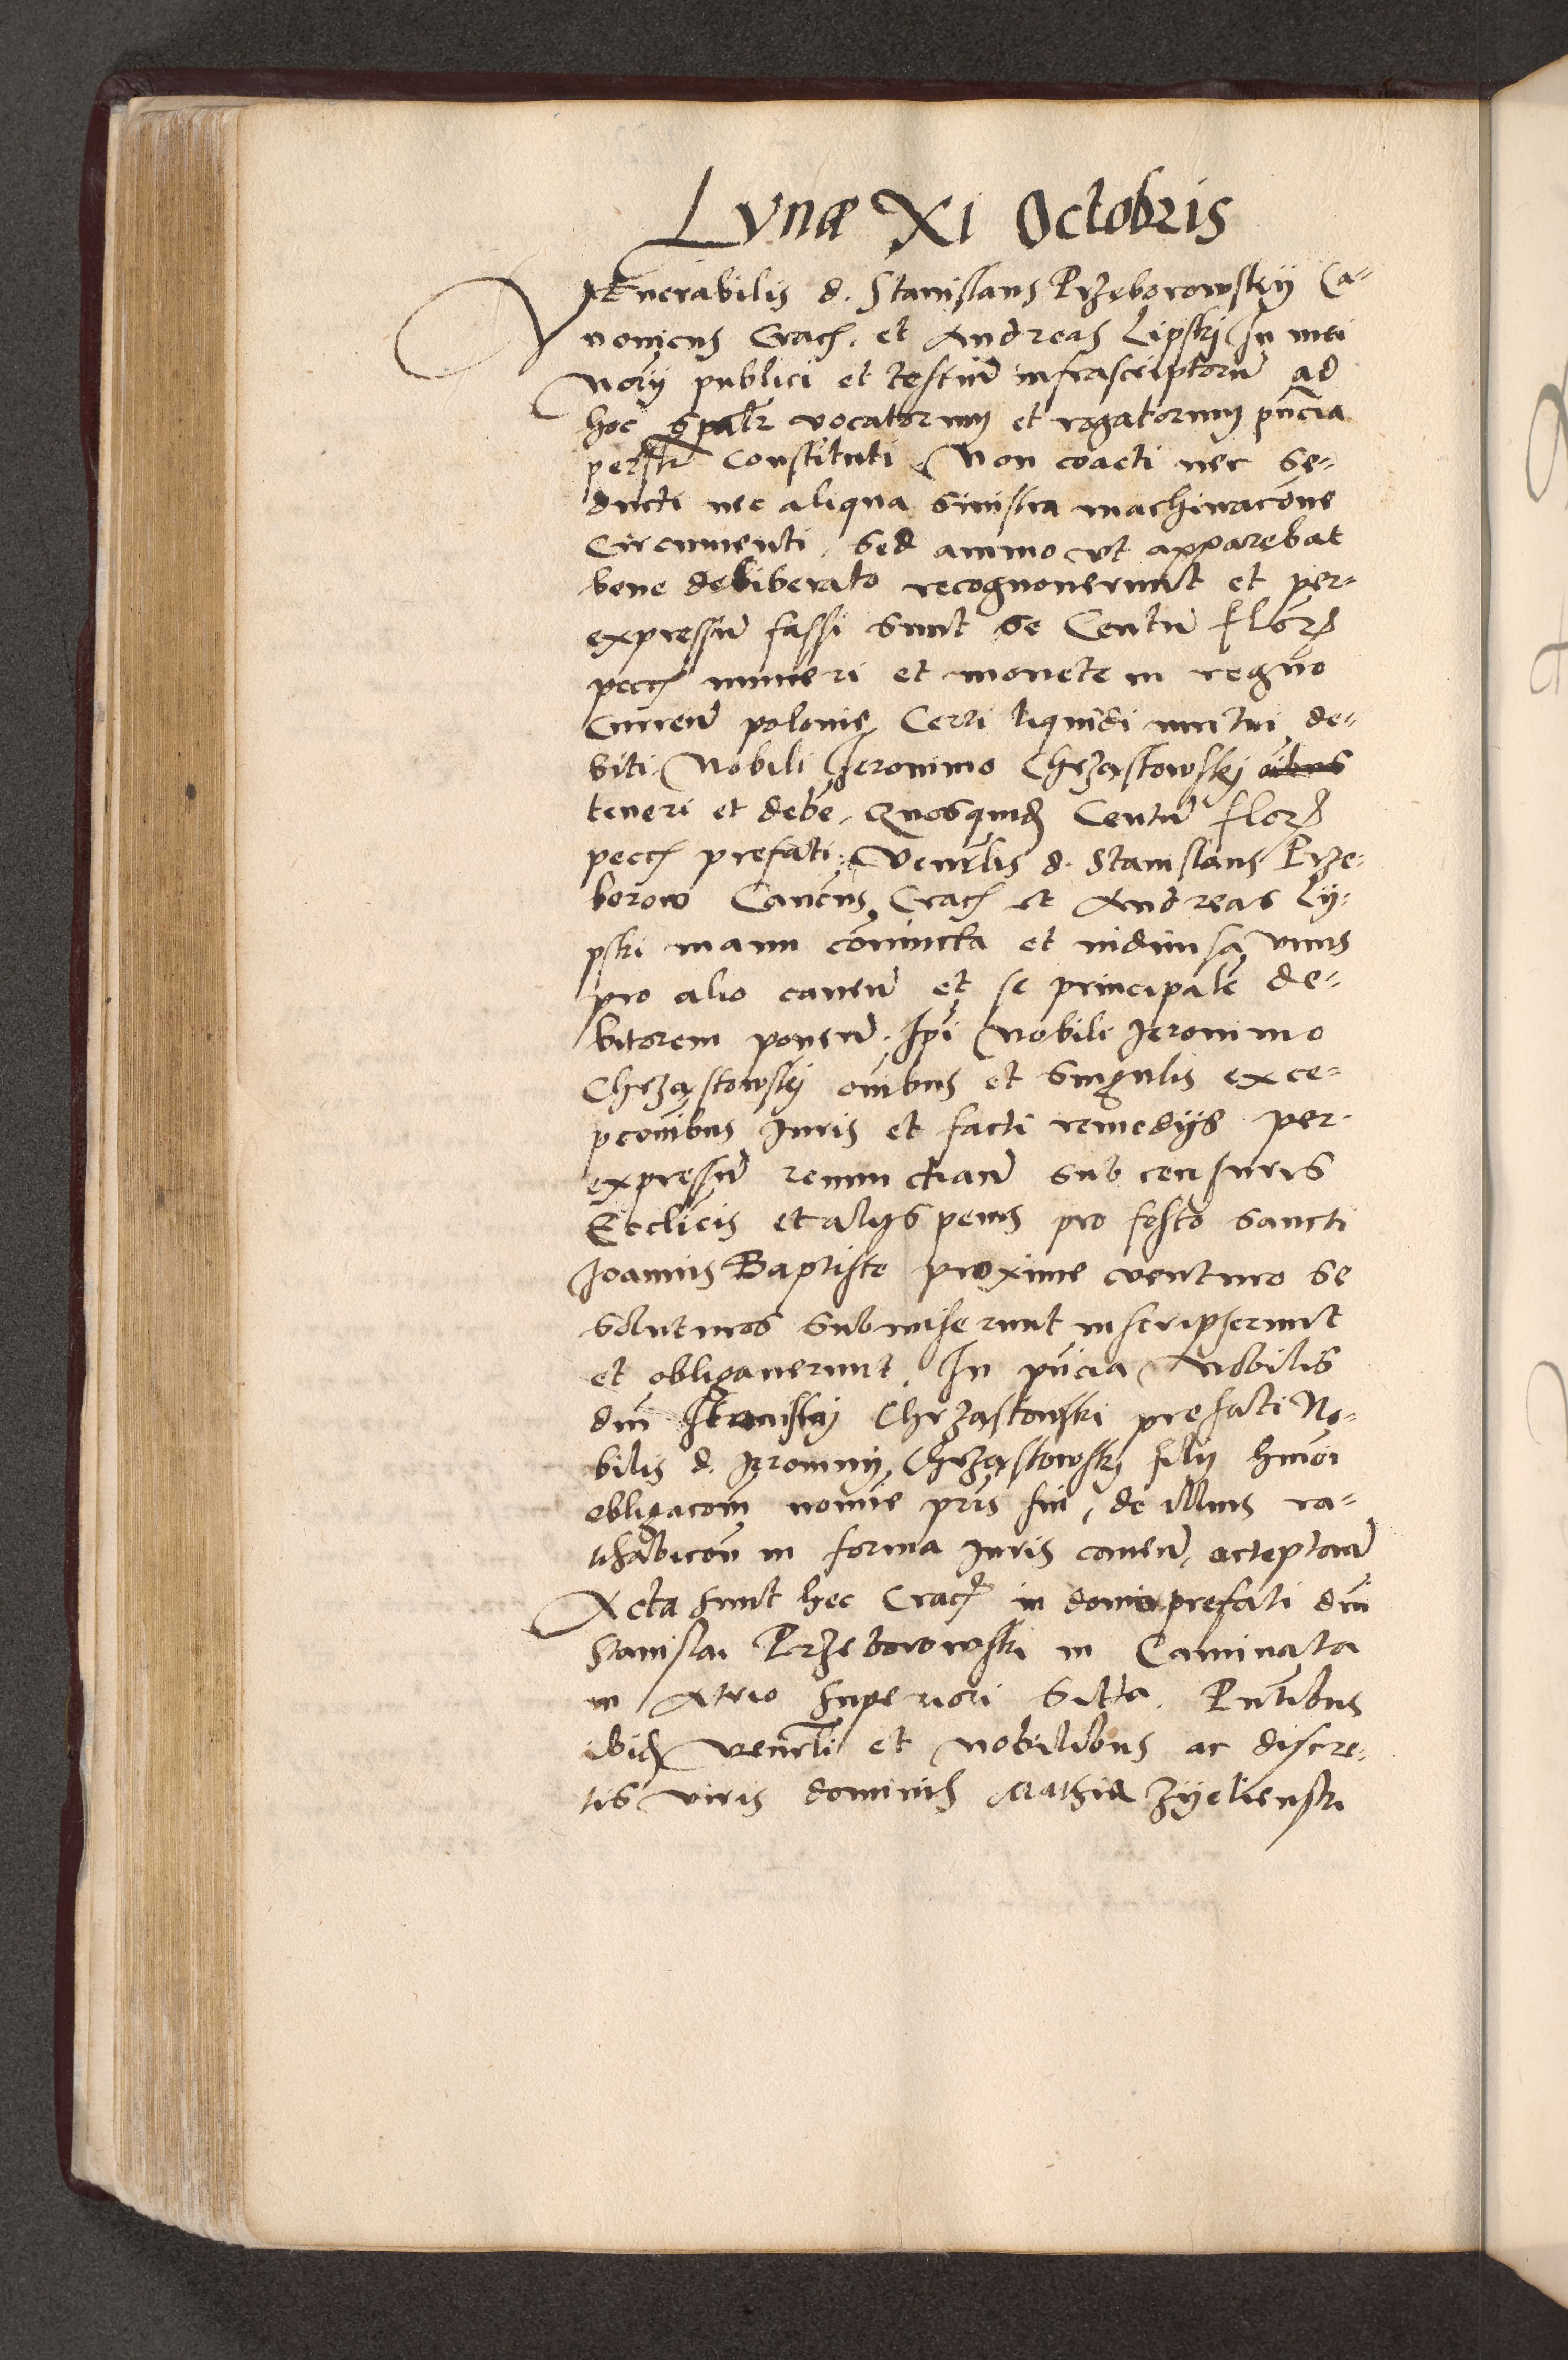 Lvnæ XI Octobris
VEnerabilis d. Stanislaus Przeborowskij Ca-
nonicus Crac. et Andreas Lipskij In mei
Norij publici et testiū infrascriptorū ad
hoc spalr vocatorum et rogatorum pn̄cia
persr Constituti Non coacti nec se-
ducti nec aliqua sinistra machinacōne
Circumuenti, sed animo vt apparebat
bene deliberato recognouerunt et per-
expressū fassi sunt se Centū flor
pecc numeri et monete in regno
Currēn polonie Certi liquidi mutui de-
biti Nobili Jeronimo Chrząstowskij
teneri et debē, Quosquid Centū flor
pecc prefati Venrlis d. Stanislaus Prze-
borow Canōcus Crac et Andreas Ly-
pski manu cōniuncta et indiuisa vnus
pro alio cauen̄ et se principalē de-
bitorem ponen̄. Ipi Nobili Jeronimo
Chrząstowskij oīnibus et singulis exce-
pcōnibus Iuris et facti remedijs per-
expressū renunctian̄ sub censuris
Ecclīcis et alijs penis pro festo sancti
Joannis Baptiste proxime venturo se
soluturos submiserunt inscripserunt
et obligauerunt. In pn̄cia Nobilis
dn̄i Chrząstowski prefati No-
bilis d. Jeronimij Chrząstowskij filij hmōi
obligacōm nomīe prīs sui, de illius ra-
tihabicōn in forma Iuris cauen̄, acceptan̄
Acta sunt hec Crac in domo prefati dn̄i
Stanislai Przeborowski in Caminata
in Atrio superiori sitta. Pn̄tibus
ibid Venrli et nobilibus ac discre-
tis viris dominis Mathia Zyelienski